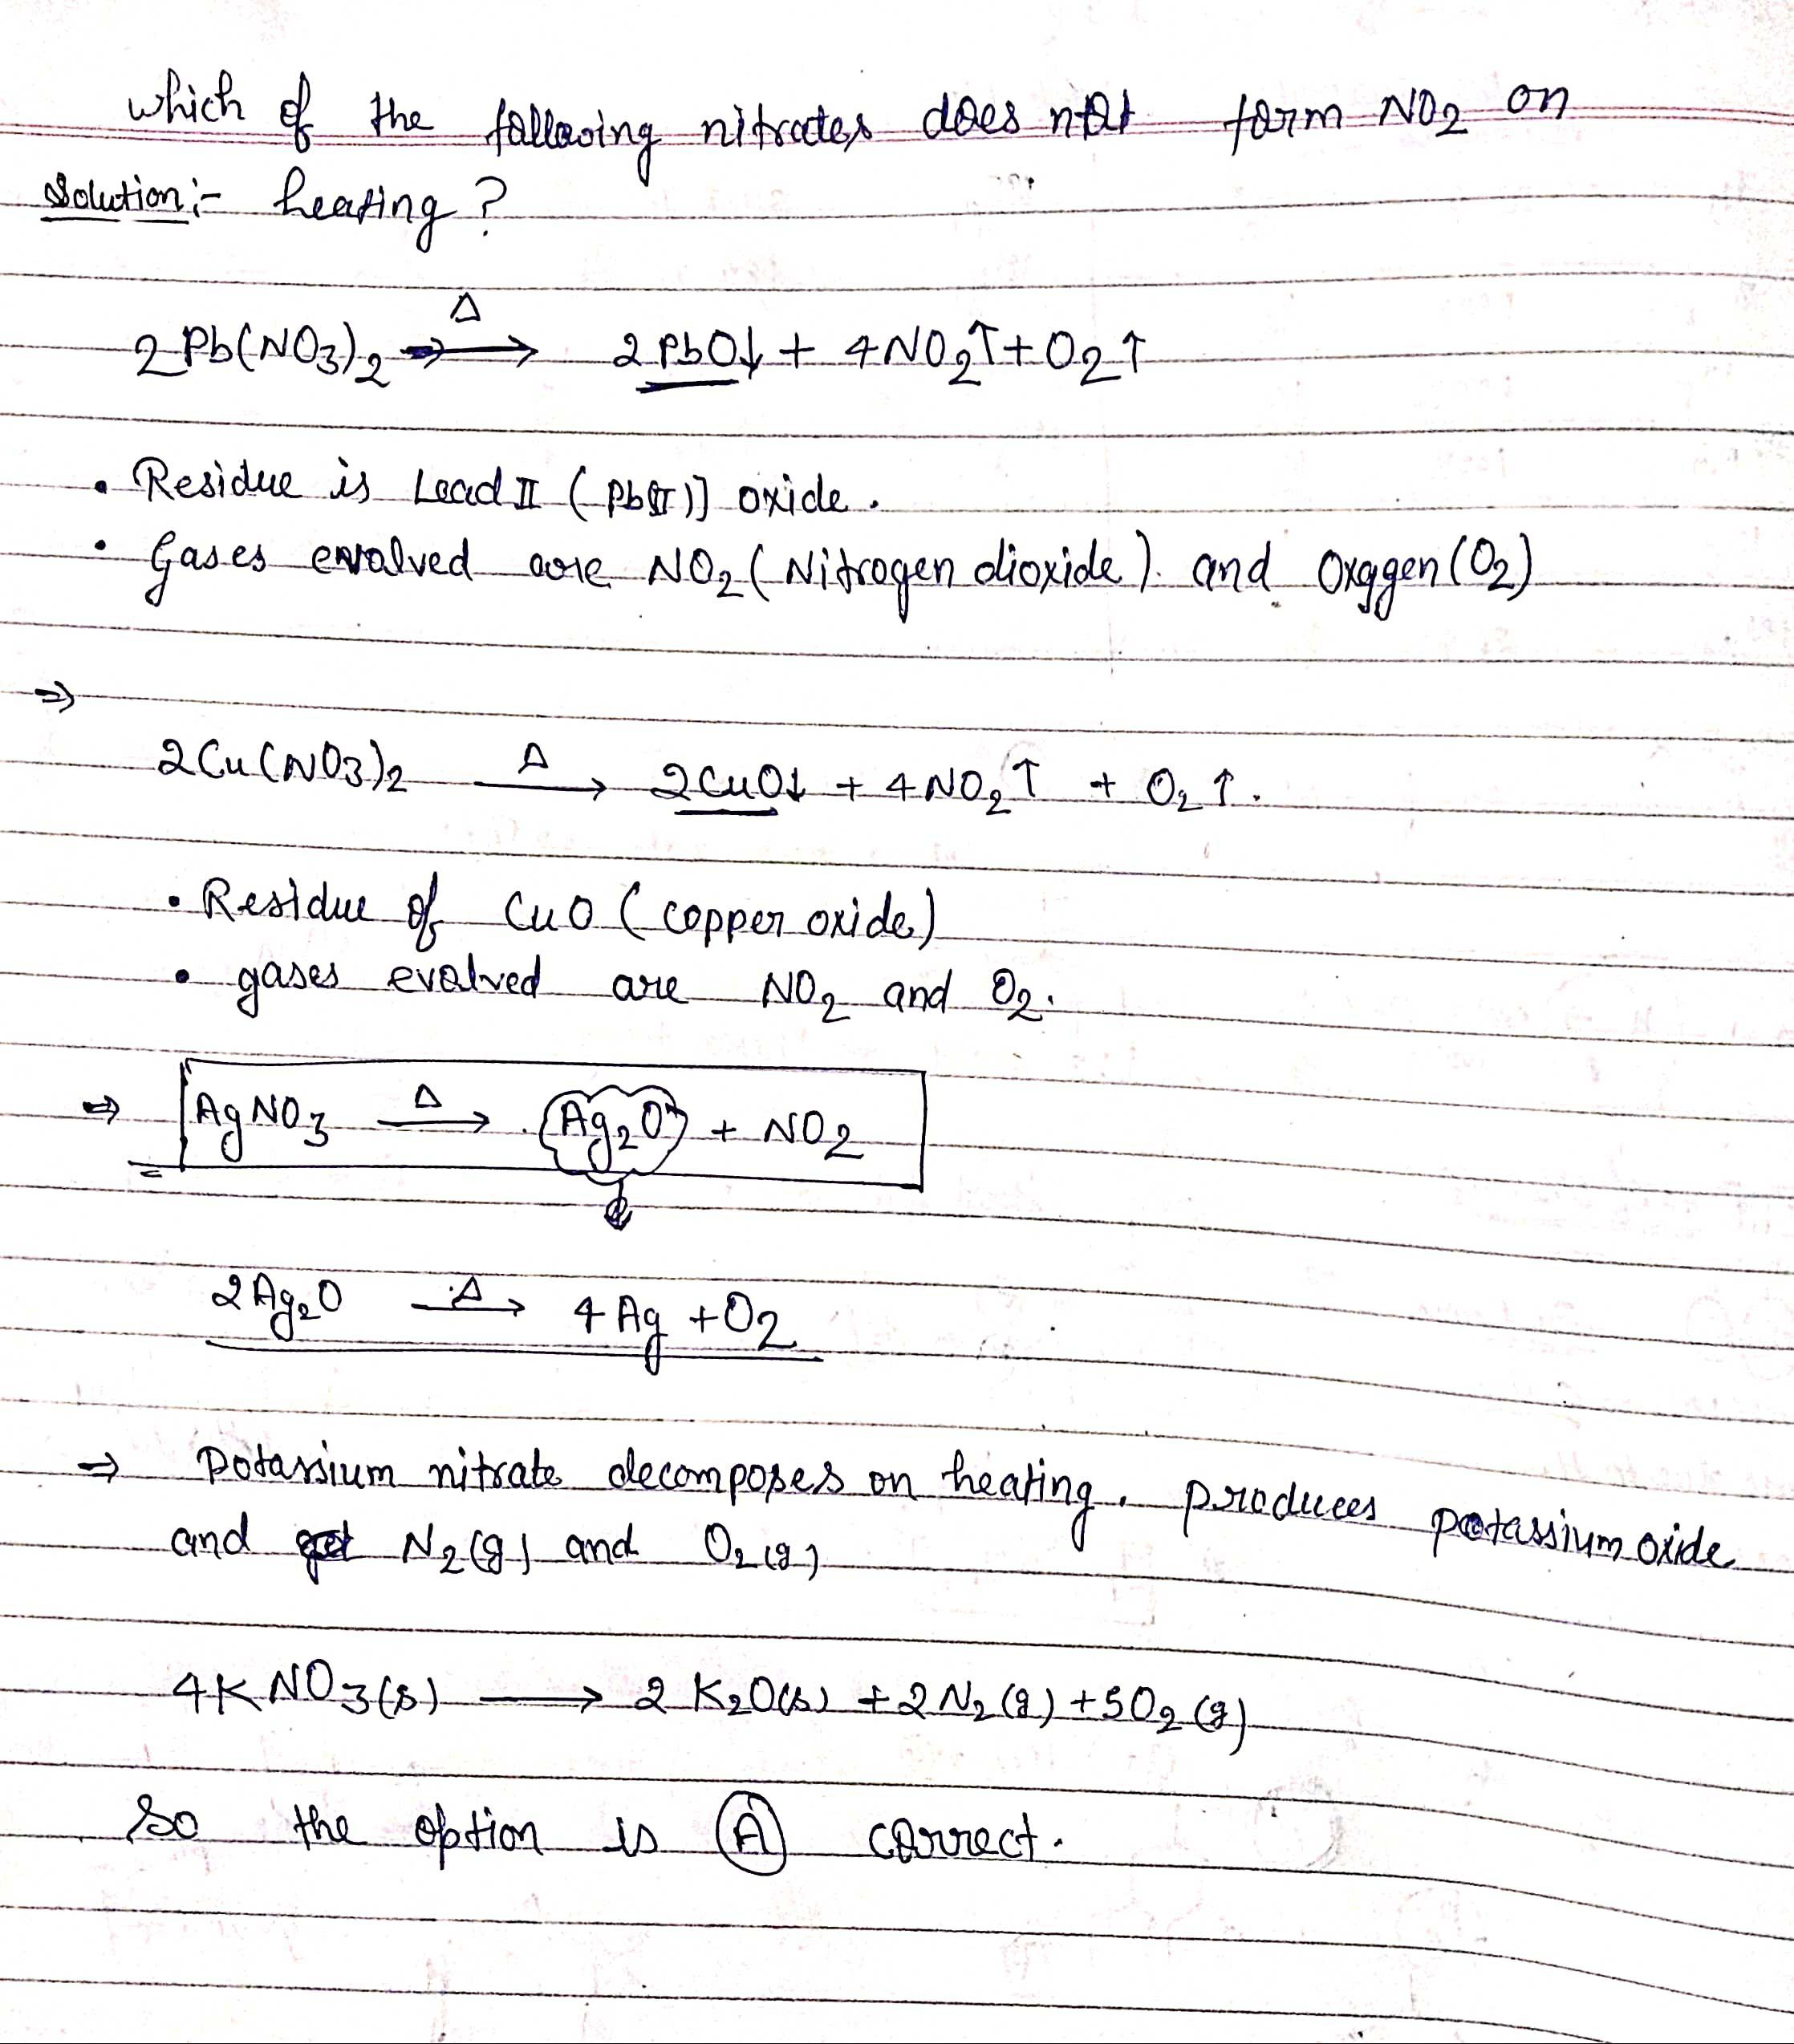 which of the following nitrates does not form NO2 on
Solution :- heating ?
2 Pb(NO3)2 →Δ→ 2 PbO↓ + 4NO2↑ + O2↑
• Residue is Lead II (Pb(II)] oxide.
• Gases evolved are NO2 (Nitrogen dioxide). and Oxygen (O2)
⇒
2Cu(NO3)2 Δ→ 2CuO↓ + 4NO2↑ + O2↑.
• Residue of CuO (copper oxide)
• gases evolved are NO2 and O2.
⇒ AgNO3 Δ→ Ag2O + NO2
2Ag2O Δ→ 4Ag + O2
⇒ Potassium nitrate decomposes on heating. produces potassium oxide
and N2(g) and O2(g)
4KNO3(s) → 2 K2O(s) + 2N2(g) + 5O2(g)
So the option is (A) correct.